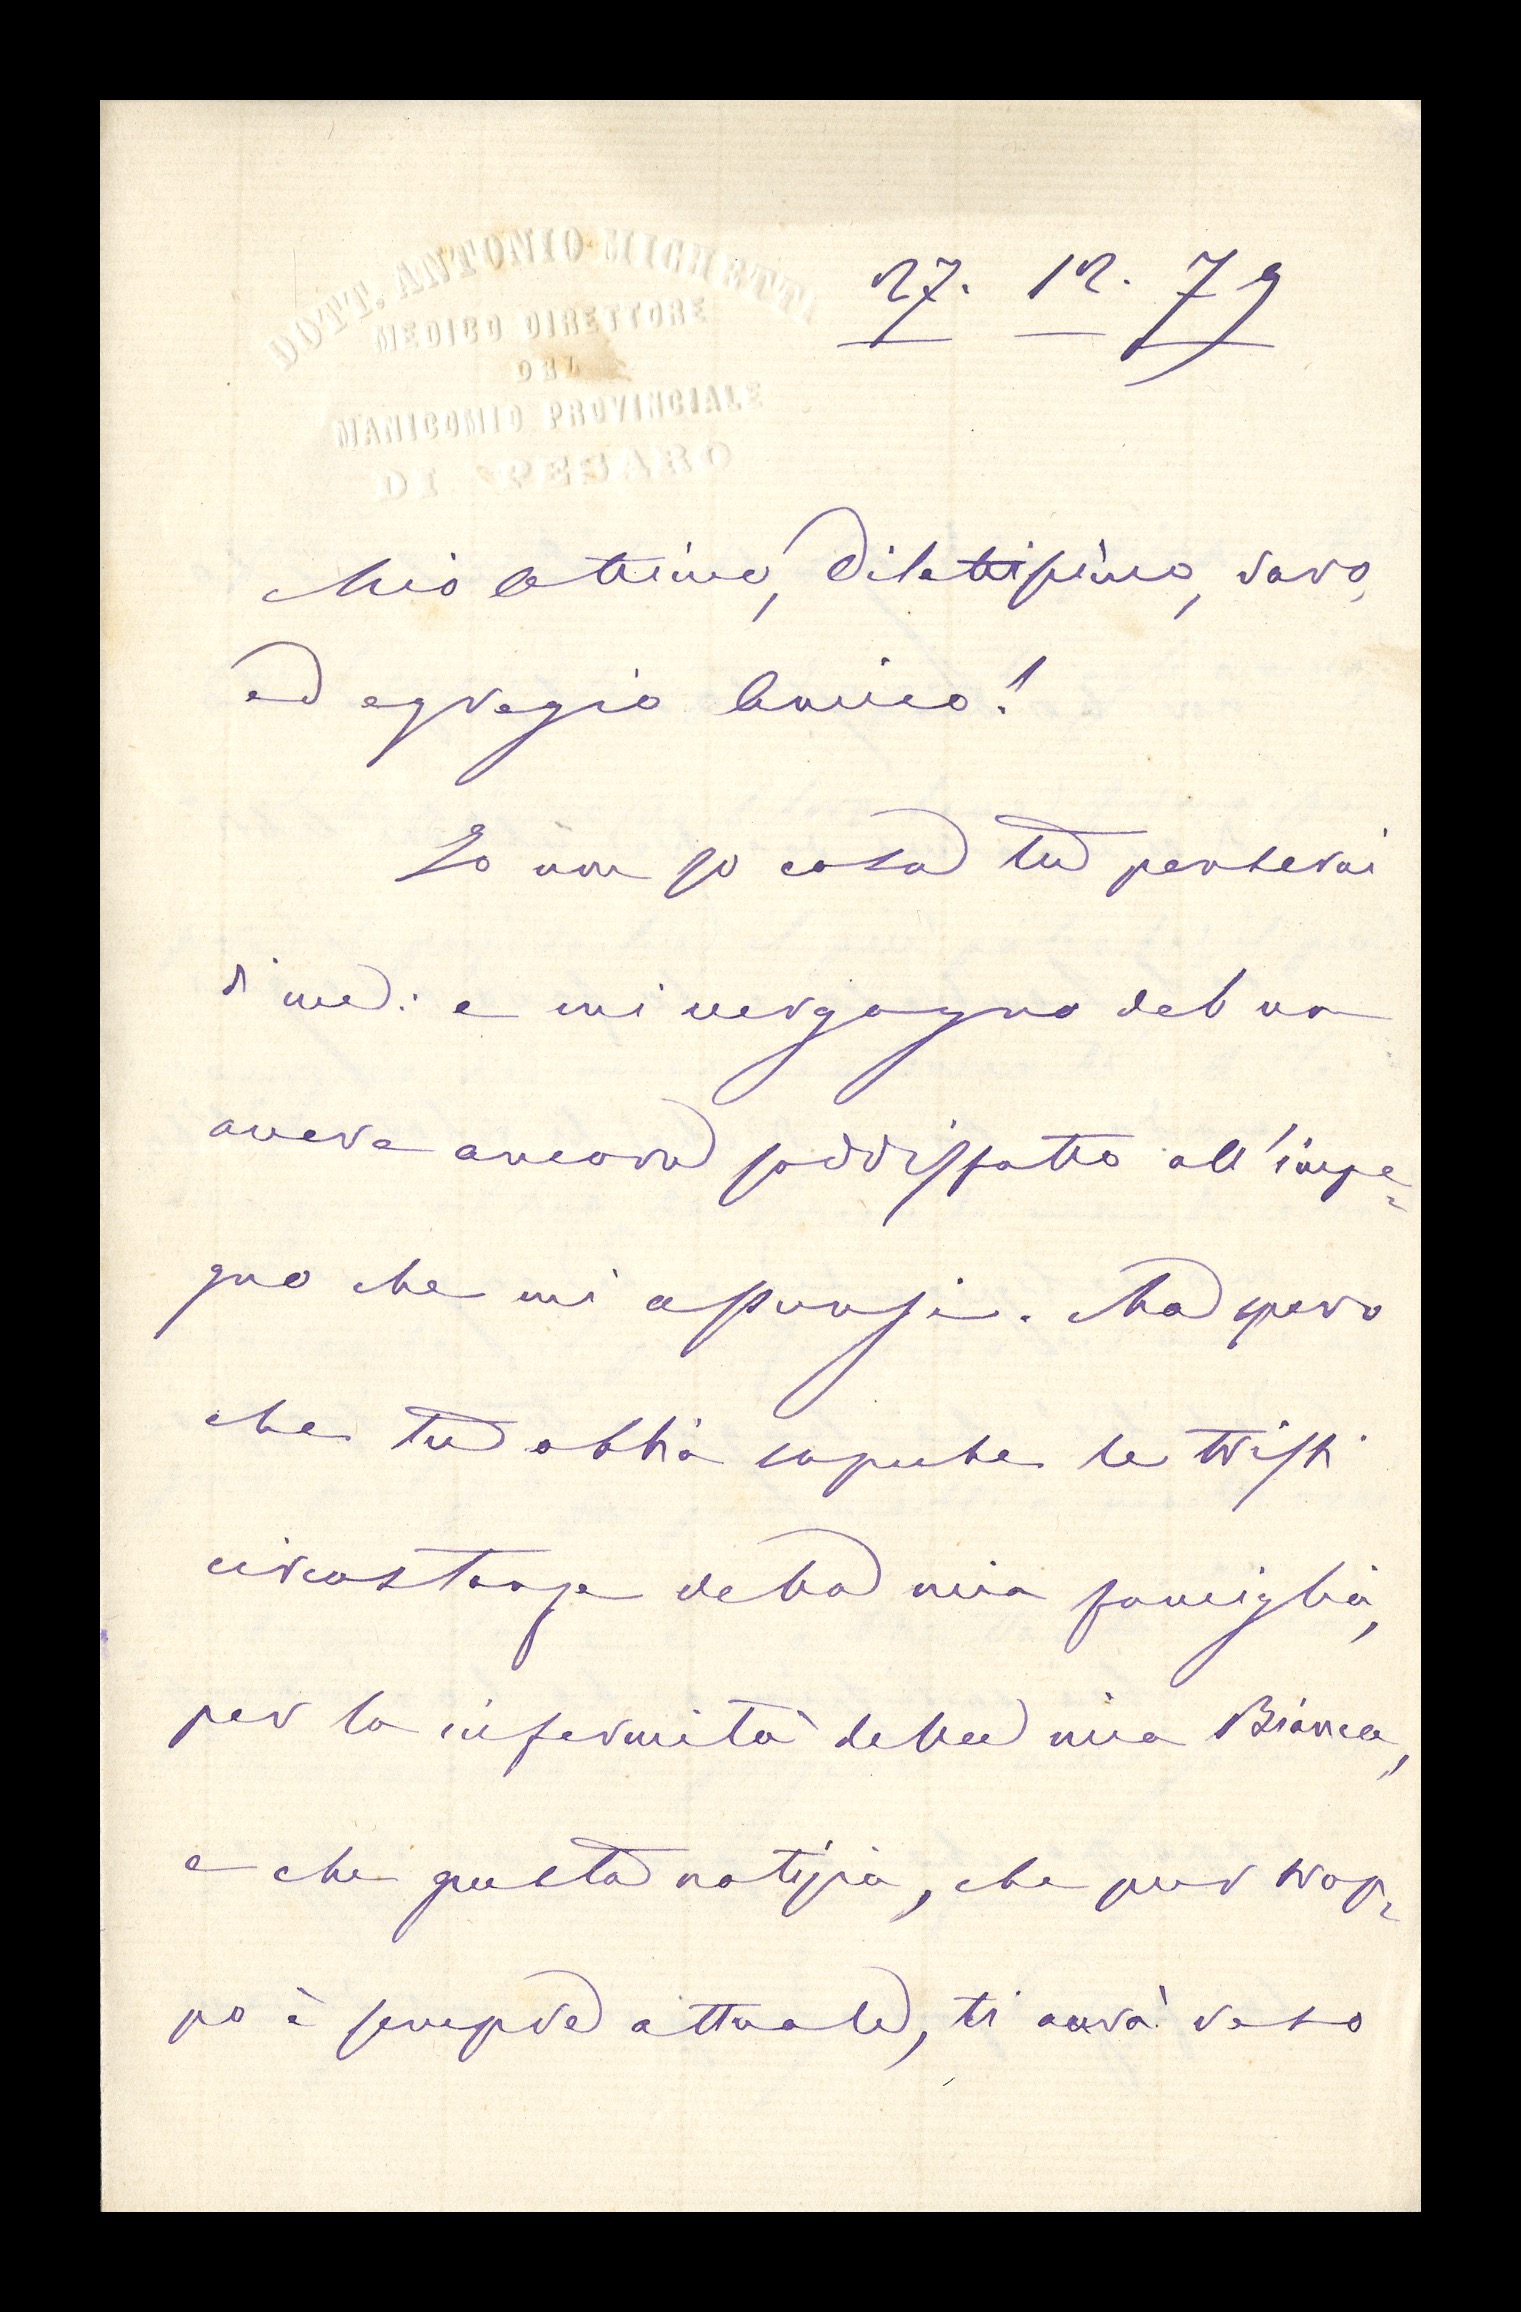 DOTT. ANTONIO MICHETTI
MEDICO DIRETTORE
DEL
MANICOMIO PROVINCIALE
DI PESARO
27. 12. 79
Mio ottimo, dilettissimo, raro,
ed egregio Amico!
Io non so cosa tu penserai
di me: e mi vergogno del no
avere ancora soddisfatto all'impe-
gno che mi assunsi. Ma spero
che tu abbia sapute le tristi
circostanze della mia famiglia,
per la infermità della mia Bianca,
e che questa notizia, che pur trop-
po è sempre attuale, ti avrà reso